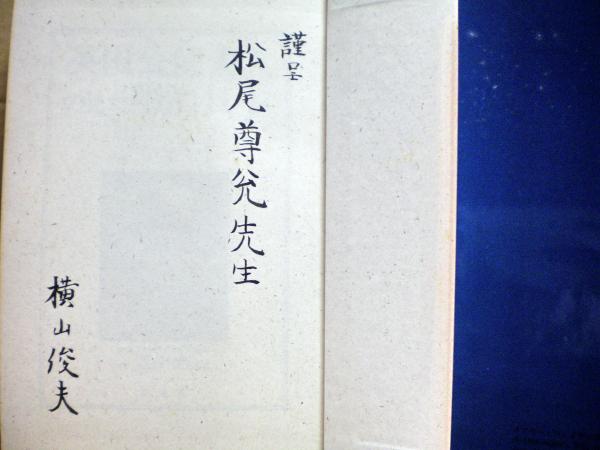 謹呈
松尾尊兊先生
横山俊夫